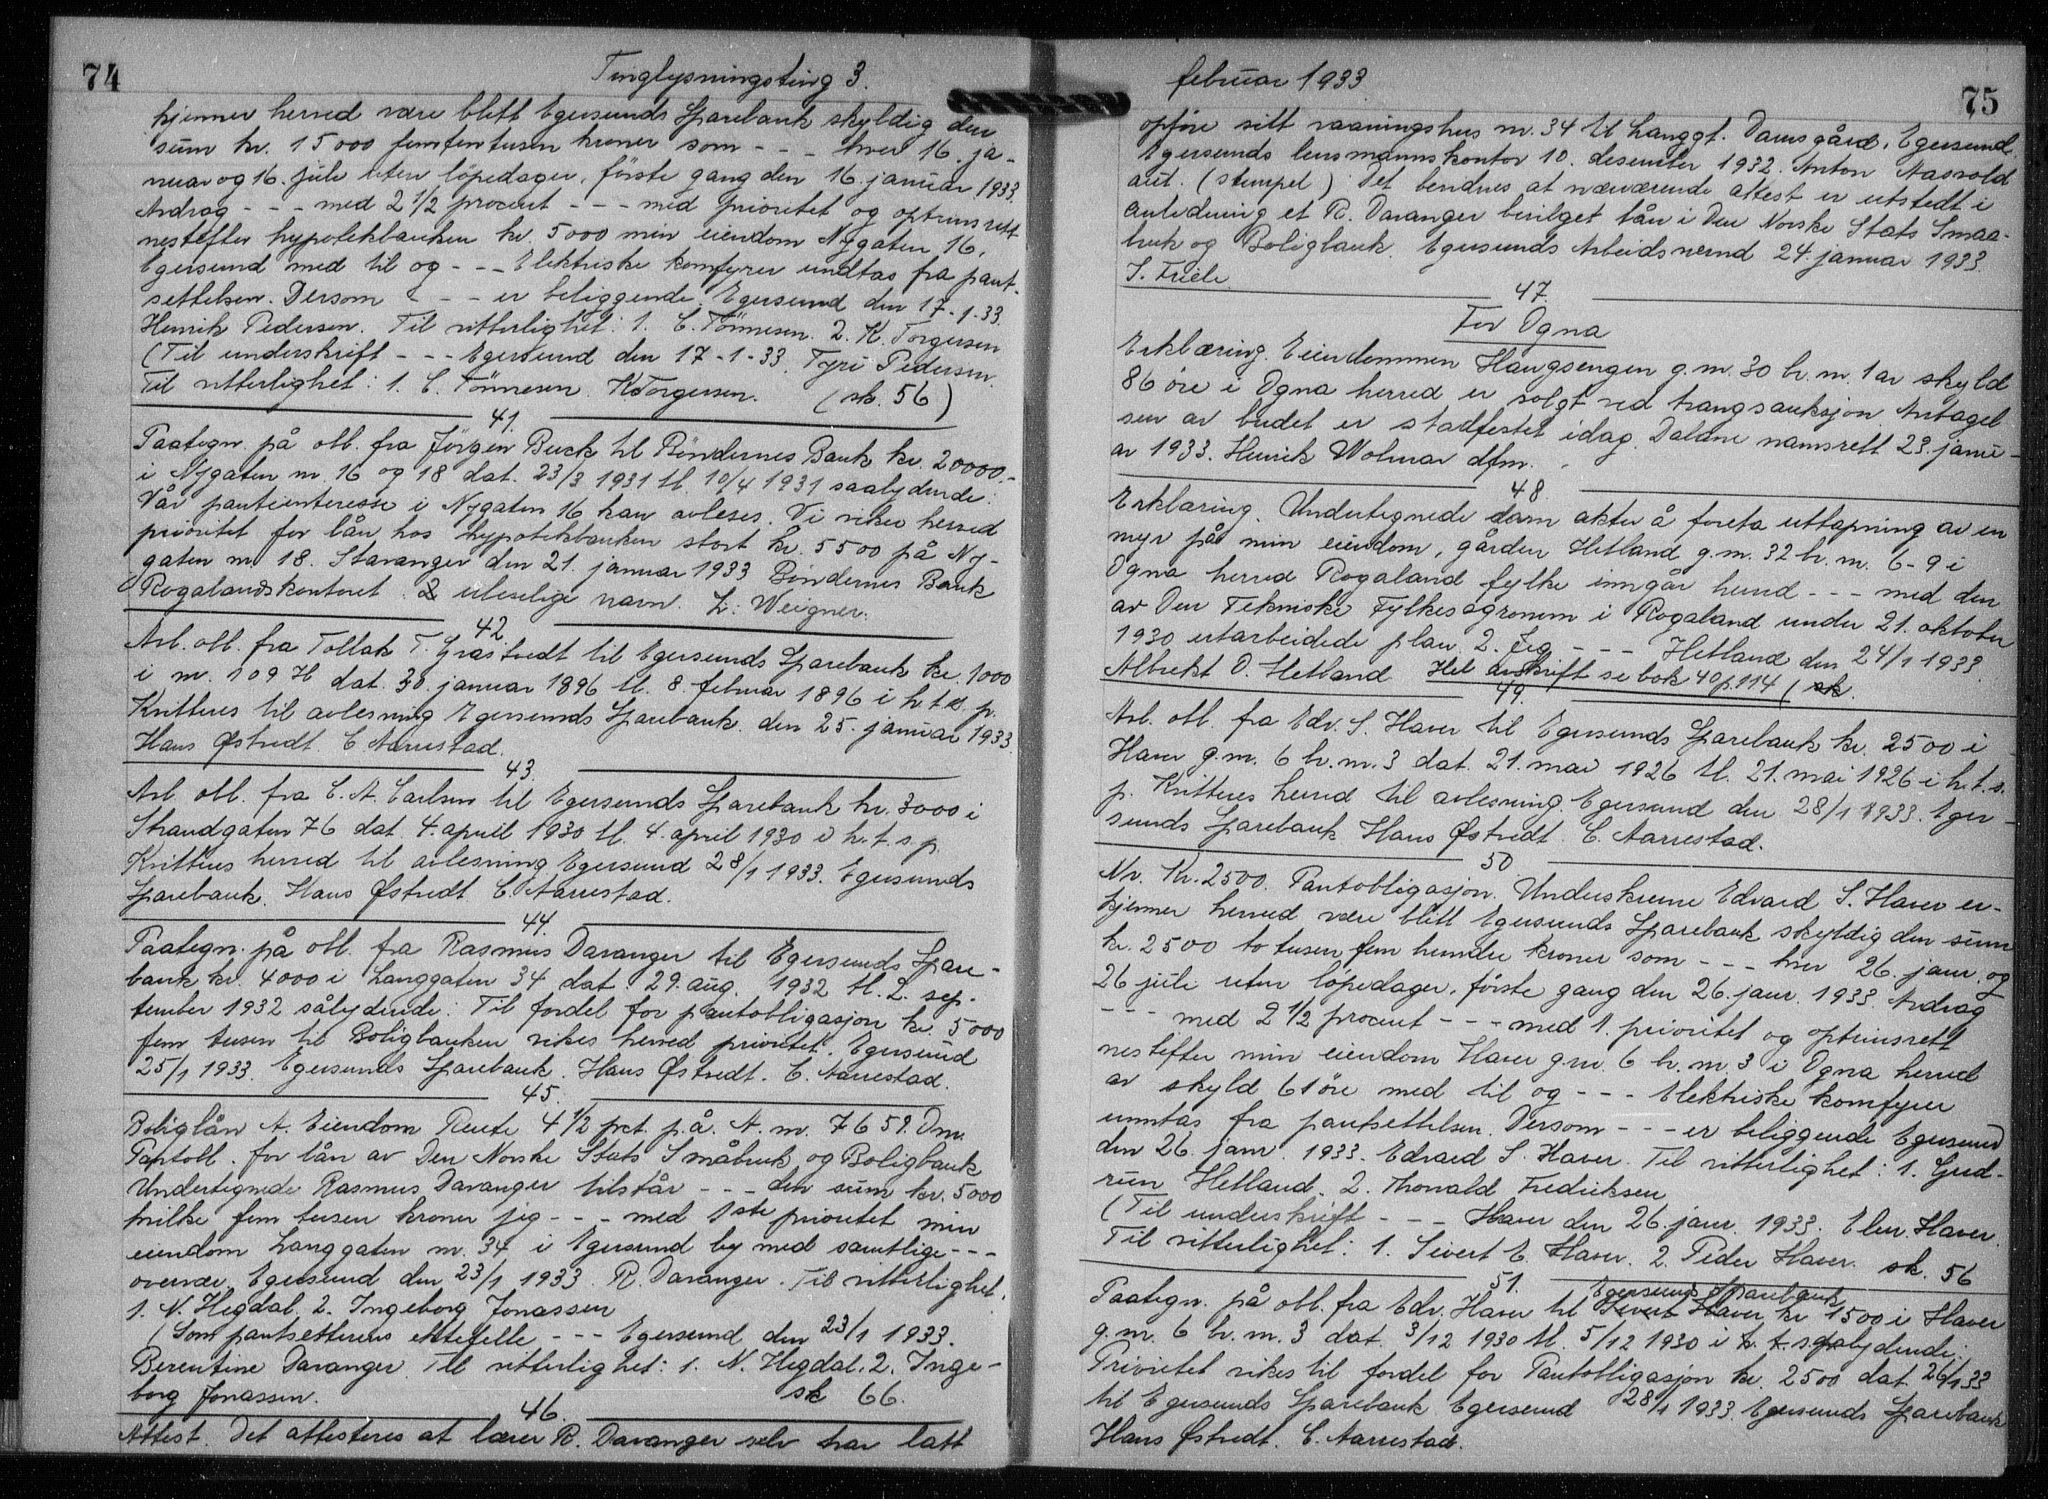 74
Tinglysningsting 3.
kjenner herved være blitt Egersunds Sparebank skyldig den
sum kr. 15000 femtentusen kroner som - - - hver 16. ja-
nuar og 16. juli uten löpedager, förste gang den 16. januar 1933.
Avdrag - - - med 2 1/2 procent - - - med prioritet og optrinsrett
nestefter hypotekbanken kr. 5000 min eiendom Nygaten 16,
Egersund med til og - - - Elektriske komfyrer undtas fra pant-
settelsen. Dersom - - - er beliggende. Egersund den 17-1-33.
Henrik Pedersen. Til vitterlighet: 1. C. Tönnesen. 2. K. Torgersen
(Til underskrift - - - Egersund den 17-1-33. Tyri Pedersen.
Til vitterlighet: 1. C. Tönnesen K Torgersen. (sk. 56)
41.
Paategn. på obl. fra Jørgen Buck til Bøndernes Bank kr. 20000.-
i Nygaten nr. 16 og 18 dat. 23/3 1931 tl. 10/4 1931 saalydende:
Vår panteinteresse i Nygaten 16 kan avleses. Vi viker herved
prioritet for lån hos hypotekbanken stort kr. 5500 på Ny-
gaten nr 18. Stavanger den 21. januar 1933 Bøndernes Bank
Rogalandskontoret. 2 uleselige navn. L: Weigner.
42.
Avl. obl. fra Tollak T. Grastvedt til Egersunds Sparebank kr. 1000
i nr. 109 H dat. 30. januar 1896 tl. 8. februar 1896 i h.t.s. p.
Kvitteres til avlesning Egersunds Sparebank. den 25. januar 1933.
Hans Østvedt. C Aarrestad.
43.
Avl obl. fra C. A. Carlsen til Egersunds Sparebank kr. 3000 i
Strandgaten 76 dat. 4. april 1930 tl. 4. april 1930 i h.t.s.p.
Kvitteres herved til avlesning Egersund 28/1 1933. Egersunds
Sparebank. Hans Østvedt. C. Aarrestad.
44.
Paategn. på obl. fra Rasmus Davanger til Egersunds Spare-
bank kr. 4000 i Langgaten 34 dat. 29. aug. 1932 tl. 2. sep-
tember 1932 sålydende: Til fordel for pantobligasjon kr. 5000
fem tusen til Boligbanken vikes herved prioritet. Egersund
25/1 1933. Egersunds Sparebank. Hans Østvedt. C. Aarrestad.
45.
Boliglån A. Eiendom Rente 4 1/2 pct. p.å. A. nr. 7659. Dnr.
Pantobl. for lån av Den Norske Stats Småbruk og Boligbank
Undertegnede Rasmus Davanger tilstår - - - den sum kr. 5000
hvilke fem tusen kroner jeg - - - med 1ste prioritet min
eiendom Langgaten nr. 34 i Egersund by med samtlige - - -
overvær. Egersund den 23/1 1933. R. Davanger. Til vitterlighet.
1. N. Hegdal. 2. Ingeborg Jonassen
(Som pantsetterens ektefelle - - - Egersund den 23/1 1933.
Berentine Davanger. Til vitterlighet: 1. N. Hegdal. 2. Inge-
borg Jonassen. sk 66.
46.
Attest. Det attesteres at lærer R. Davanger selv har latt
februar 1933
75
opföre sitt vaaningshus nr. 34 til Langgt. Damsgård, Egersund.
Egersunds lensmannskontor 10. desember 1932. Anton Aasvold
aut. (stempel) Det bevidnes at nærværende attest er utstedt i
anledning et R. Davanger bevilget lån i Den Norske Stats Smaa-
bruk og Boligbank. Egersunds Arbeidsnevnd 24. januar 1933.
S. Friele
47.
For Ogna
Erklæring. Eiendommen Haugsengen g.nr. 30 br.nr. 1 av skyld
86 öre i Ogna herred er solgt ved tvangsauksjon. Antagel
sen av budet er stadfestet idag. Dalane namsrett 23. janu-
ar 1933. Henrik Wolmar dfm.
48.
Erklæring. Undertegnede som akter å foreta uttapning av en
myr på min eiendom, gården Hetland g.nr. 32 br.nr. 6-9 i
Ogna herred Rogaland fylke inngår herved - - - med den
av Den Tekniske Fylkesagronom i Rogaland under 21. oktober
1930 utarbeidede plan 2. Jeg - - - Hetland den 24/1 1933.
Albrekt O. Hetland Hel avskrift se bok 40 p. 114 ( sk.
49.
Avl. obl. fra Edv. S. Haver til Egersunds Sparebank kr. 2500 i
Haver g.nr. 6 br.nr. 3 dat. 21. mai 1926 tl. 21. mai 1926 i h.t.s.
p. Kvitteres herved til avlesning. Egersund den 28/1 1933. Eger-
sunds Sparebank Hans Østvedt. C. Aarrestad.
50
Nr. Kr. 2500. Pantobligasjon. Underskrevne Edvard S. Haver er-
kjenner herved være blitt Egersunds Sparebank skyldig den sum
kr. 2500 to tusen fem hundre kroner som - - - hver 26. janr. og
26 juli uten löpedager, förste gang den 26. janr. 1933. Avdrag
- - - med 2 1/2 procent - - - med 1. prioritet og optrinsrett
nestefter min eiendom Haver gnr. 6 br.nr. 3 i Ogna herred
av skyld 61 öre med til og - - - Elektriske komfyrer
unntas fra pantsettelsen. Dersom - - - er beliggende Egersund
den 26. janr. 1933. Edvard S. Haver. Til vitterlighet: 1. Gud-
run Hetland. 2. Thorvald Fredriksen
(Til underskrift - - - Haver den 26. janr 1933. Elen Haver.
Til vitterlighet: 1. Sivert E. Haver. 2. Peder Haver. sk. 56
51.
Egersunds Sparebank
Paategn. på obl. fra Edv. Haver til Sivert Haver kr 1500 i Haver
g.nr. 6 br.nr. 3 dat. 3/12 1930 tl. 5/12 1930 i h.t.s.p. saalydende:
Prioritet vikes til fordel for Pantobligasjon kr. 2500 dat. 26/1 33
til Egersunds Sparebank Egersund 28/1 1933. Egersunds Sparebank
Hans Østvedt. C. Aarrestad.